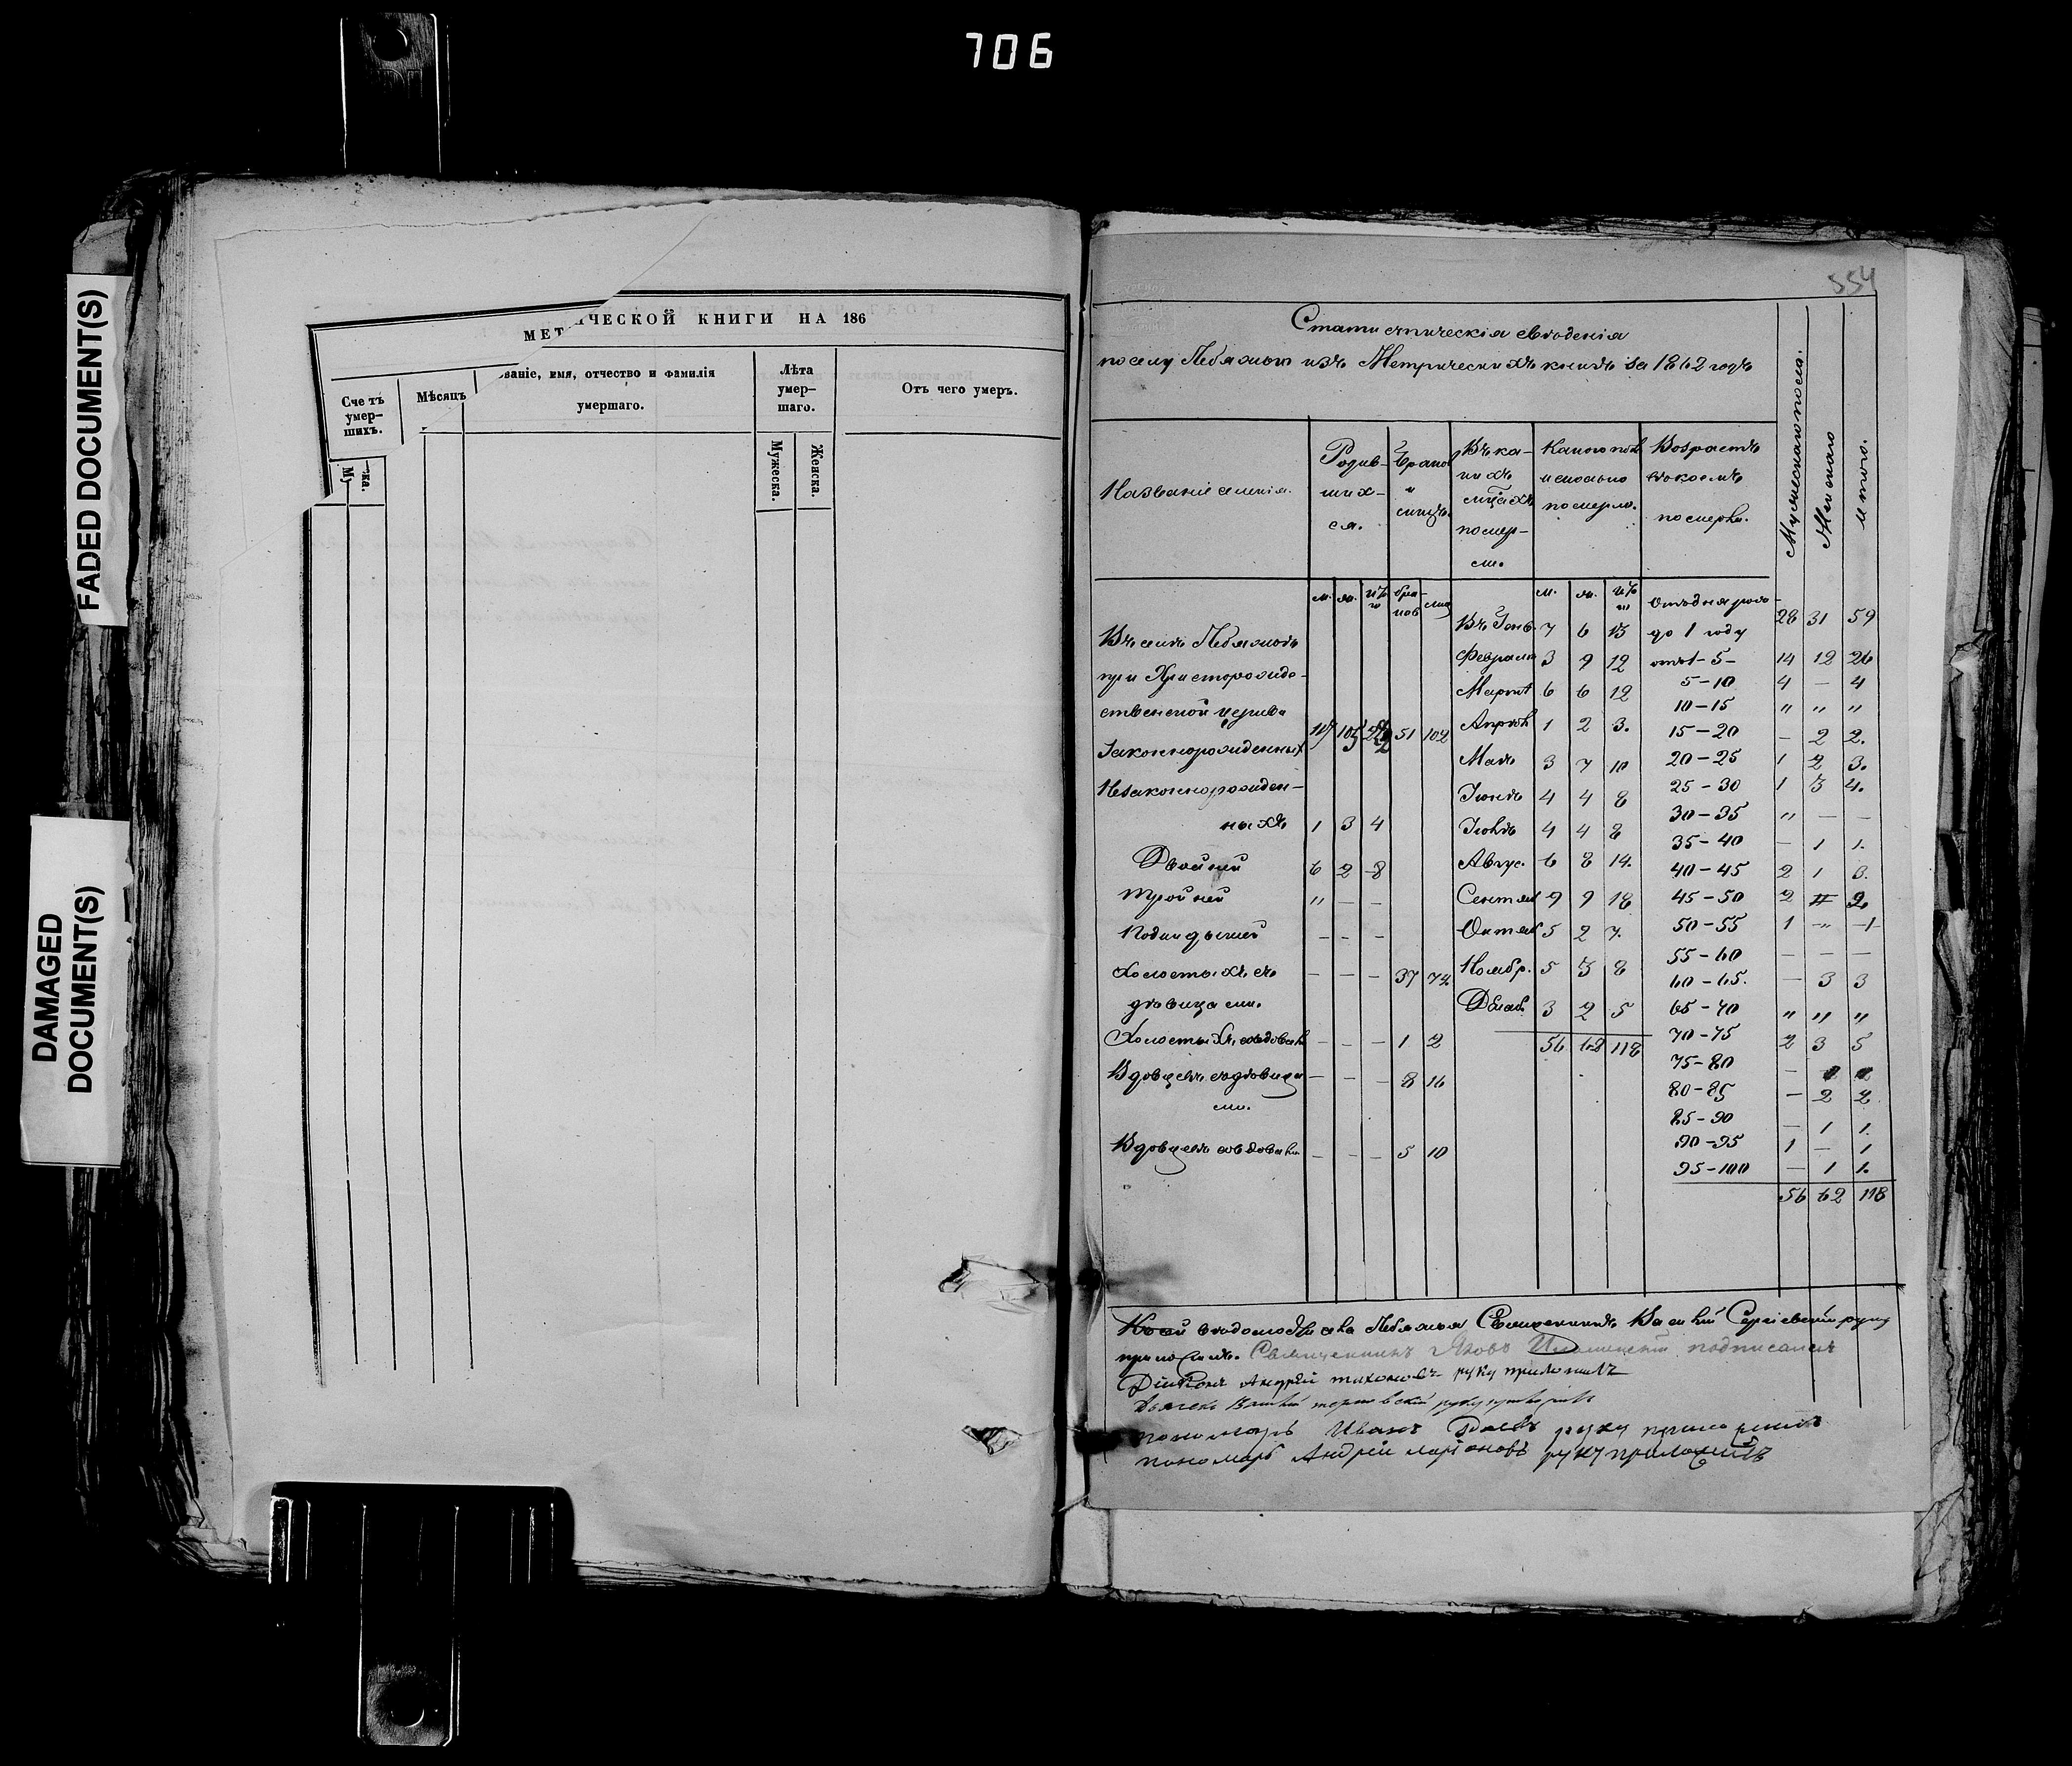 706
FADED DOCUMENT(S)
DAMAGED
DOCUMENT(S)
МЕТ ИЧЕСКОЙ КНИГИ НА 186
Сче тъ
умер-
шихъ.
Мѣсяцъ
званіе, имя, отчество и фамилія
умершаго.
Лѣта
умер-
шаго.
Отъ чего умеръ.
Му
ска.
Мужеска.
Женска.
554
Статистическія свѣденія
по селу изъ Метрическихъ книгъ за 1862 годъ
Названіе
Родив-
ших-
ся.
Браковъ
и
Въ ка-
кихъ
помер-
ли.
Какого пола
и сколько
померло.
Возрастъ
въ коемъ
померли.
Мужескаго пола.
Женскаго
итого.
м. ж.
бра-
ков
м. ж.
до 1 году 28 31 59
Въ селѣ
при Христорожде-
ственской церкви
Законнорожденных 51 102
Незаконнорожден-
ныхъ 1 3 4
Двойней 6 2 8
Тройней " — —
Подкидышей — — —
Холостыхъ съ — — — 37 74
дѣвица ми.
Холостыхъ со вдовами — — — 1 2
Вдовцевъ съ дѣвица — — — 8 16
ми.
Вдовцевъ со вдовами — — — 5 10
Въ Генв. 7 6 13
Февраля 3 9 12
Март 6 6 12
Апрѣл 1 2 3.
Маѣ 3 7 10
Іюнѣ 4 4 8
Іюлѣ 4 4 8
Авгус. 6 8 14.
Сентяб 9 9 18
Октяб 5 2 7.
Ноябр. 5 3 8
Декаб. 3 2 5
56 62 118
от 1 - 5 - 14 12 26
5 - 10 4 — 4
10 - 15 " " "
15 - 20 — 2 2.
20 - 25 1 2 3.
25 - 30 1 3 4.
30 - 35 " — —
35 - 40 — 1 1.
40 - 45 2 1 3.
45 - 50 2 2.
50 - 55 1 - 1
55 - 60 — — —
60 - 65. — 3 3
65 - 70 " " "
70 - 75 2 3 5
75 - 80
80 - 85 — 2 2
85 - 90 — 1 1.
90 - 95 1 — 1
95 - 100 — 1 1.
56 62 118
Священникъ Василій Сергіевскій руку
приложилъ. Священникъ Яковъ подписался
Діаконъ Андрей Тихоновъ руку приложилъ
пономарь Иванъ руку приложилъ
пономарь Андрей Ларіоновъ руку приложилъ